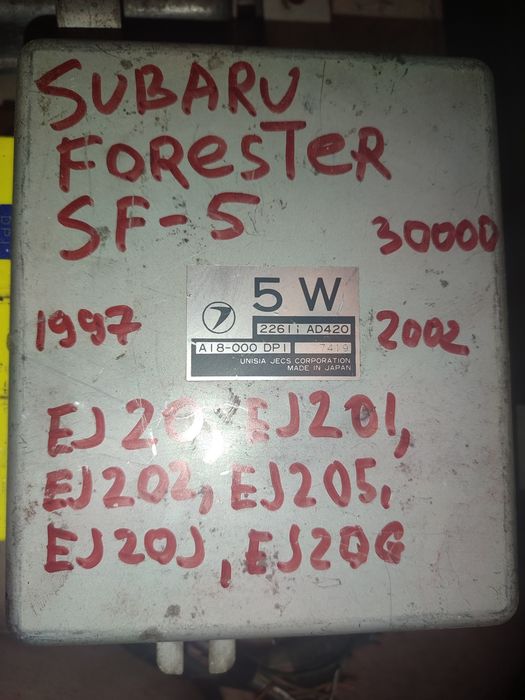 SUBARU
FORESTER
SF-5
30000
5 W
1997
22611 AD420
2002
A18-000 DP1 7419
UNISIA JECS CORPORATION
MADE IN JAPAN
EJ20, EJ201,
EJ202, EJ205,
EJ20J, EJ20G